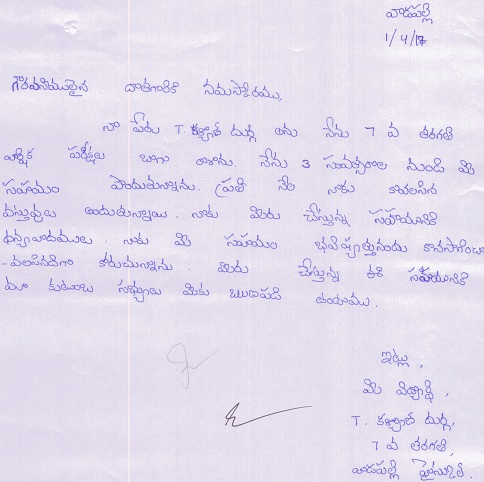 వాడపల్లి
1/4/17
గౌరవనీయులైన దాతగారికి నమస్కారము.
నా పేరు T. కళ్యాణ్ దుర్గ అను నేను 7 వ తరగతి
వార్షిక పరీక్షలు బాగా రాశాను. నేను 3 సంవత్సరాల నుండి మీ
సహాయం పొందుతున్నాను. ప్రతి నెల నాకు కావలసిన
వస్తువులు అందుతున్నాయి. నాకు మీరు చేస్తున్న సహాయానికి
ధన్యవాదములు. నాకు మీ సహాయం భవిష్యత్తునందు కొనసాగించ
-వలసినదిగా కోరుచున్నాను. మీరు చేస్తున్న ఈ సహాయానికి
మా కుటుంబ సభ్యులు మీకు ఋణపడి ఉంటాము.
ఇట్లు,
మీ విద్యార్థి,
T. కళ్యాణ్ దుర్గ,
7 వ తరగతి,
వాడపల్లి హైస్కూల్.